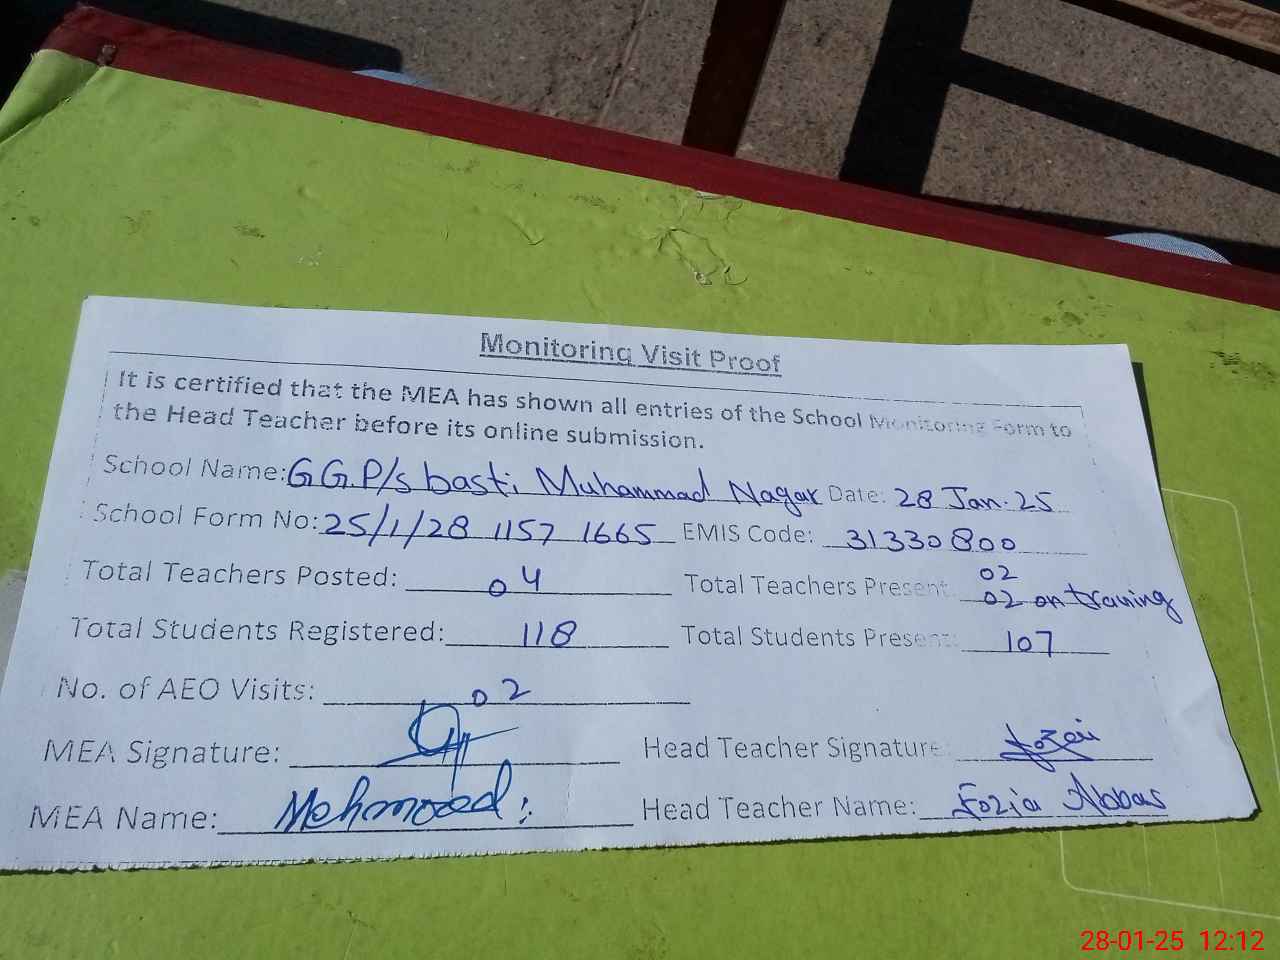 Monitoring Visit Proof
It is certified that the MEA has shown all entries of the School Monitoring Form to
the Head Teacher before its online submission.
School Name: G G.P/s basti Muhammad Nagar Date: 28 Jan. 25
School Form No: 25/1/28 1157 1665 EMIS Code: 31330800
Total Teachers Posted: 04 Total Teachers Present: 02
02 on traning
Total Students Registered: 118 Total Students Present: 107
No. of AEO Visits: 02
MEA Signature: Head Teacher Signature: fozai
MEA Name: Mehmood: Head Teacher Name: Fozia Abbas
28-01-25 12:12